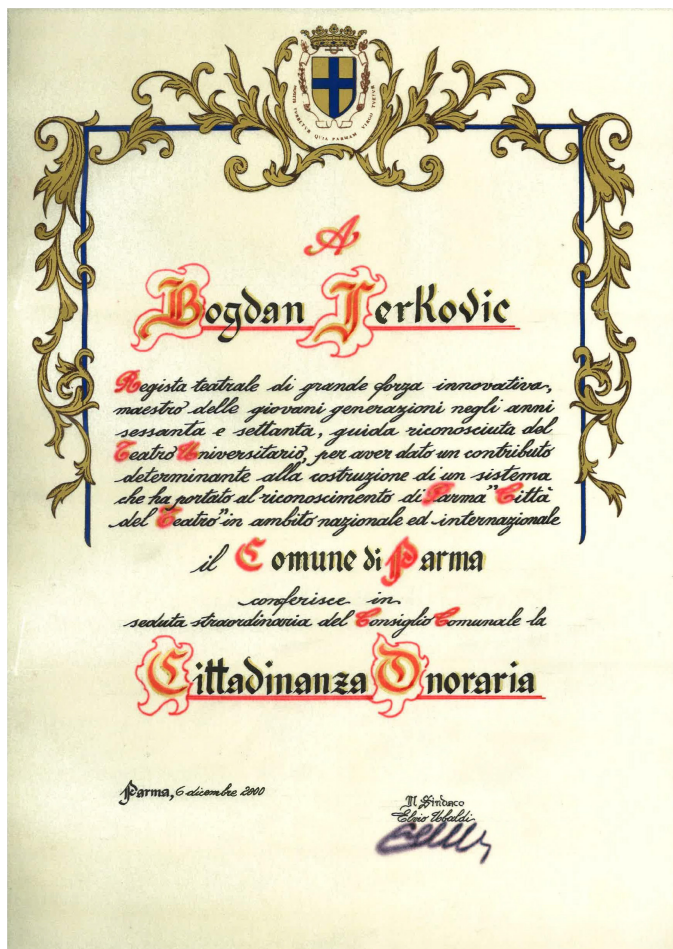 HOSTIS TURBETUR QUIA PARMAM VIRGO TUETUR
A
Bogdan Jerkovic
Regista teatrale di grande forza innovativa,
maestro delle giovani generazioni negli anni
sessanta e settanta, guida riconosciuta del
Teatro Universitario, per aver dato un contributo
determinante alla costruzione di un sistema
che ha portato al riconoscimento di Parma "Città
del Teatro" in ambito nazionale ed internazionale
il Comune di Parma
conferisce in
seduta straordinaria del Consiglio Comunale la
Cittadinanza Onoraria
Parma, 6 dicembre 2000
Il Sindaco
Elvio Ubaldi